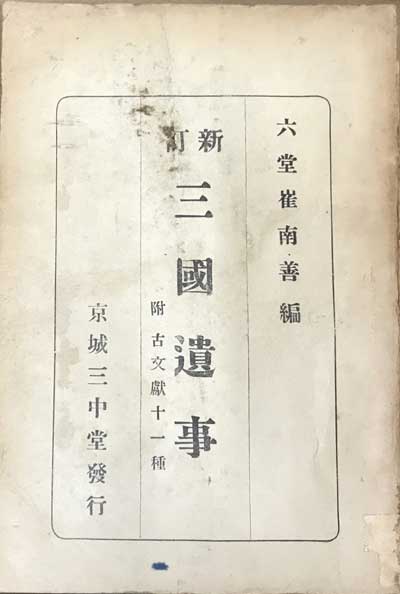 六堂崔南善編
新訂
三國遺事
附 古文獻十一種
京城三中堂發行